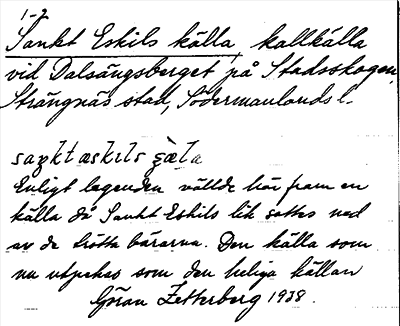 1-2
Sankt Eskils källa, kallkälla
vid Dalsängsberget på Stadsskogen,
Strängnäs stad, Södermanlands l.
Enligt legenden vällde här fram en
källa då Sankt Eskils lik sattes ned
av de trötta bärarna. Den källa som
nu utpekas som den heliga källan
Göran Zetterberg 1938.